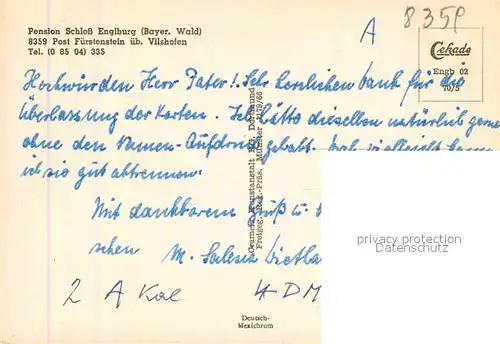 Pension Schloß Englburg (Bayer. Wald)
8359 Post Fürstenstein üb. Vilshofen
Tel. (0 85 04) 335
A
8359
Cekade
Engb 02
10/5
Hochwürden Herr Pater! Sehr herzlichen Dank für die
Überlassung der Karten. Ich hätte dieselben natürlich gerne
ohne den Namen-Aufdruck gehabt. vielleicht kann
ich sie gut abtrennen.
Mit dankbarem Gruß u.
schen M. Salesia
2 A Kal 4 DM
Cramers Kunstanstalt KG, Dortmund
Freigeg. Reg.-Präs. Münster
Deutsch-
Mexichrom
privacy protection
www.ansichtskarten-lexikon.de